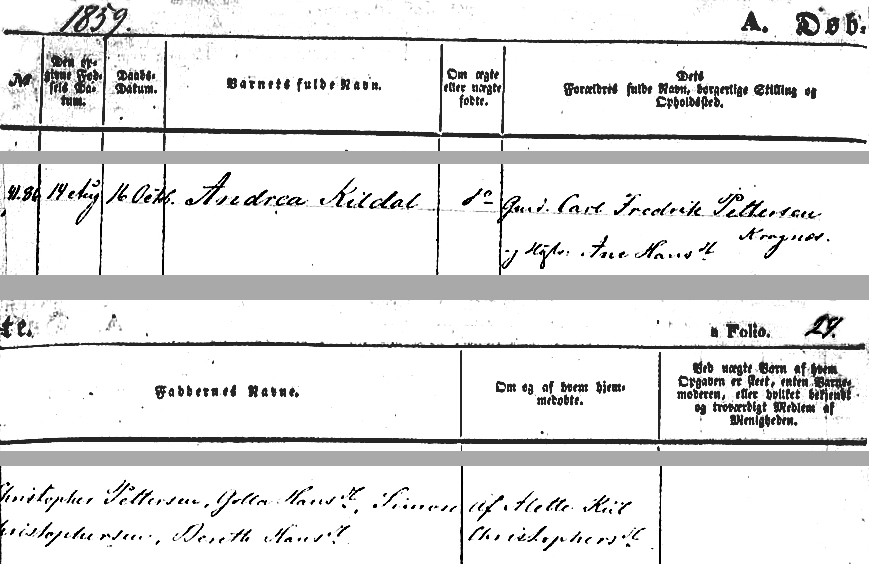 1859.
A. Døb-
№
Den op-
givne Fød-
sels Da-
tum.
Daabs-
Datum.
Barnets fulde Navn.
Om ægte
eller uægte
fødte.
Dets
Forældres fulde Navn, borgerlige Stilling og
Opholdsted.
14 Aug 16 Octb. Andrea Kildal do Gmd. Carl Fredrik Pettersen
Kragnæs.
og Hstr. Ane Hansdt
te.
a Folio. 24.
Faddernes Navne.
Om og af hvem hjem-
medøbte.
Ved uægte Børn af hvem
Opgaven er skeet, enten Barne-
moderen, eller hvilket bekjendt
og troværdigt Medlem af
Menigheden.
Christopher Pettersen, Golla Hansdt, Simon af Alette Kiil
Christophersen, Bereth Hansdt Christophersdt